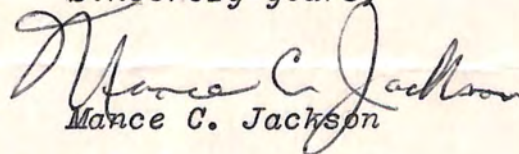 Mance C. Jackson
Mance C. Jackson